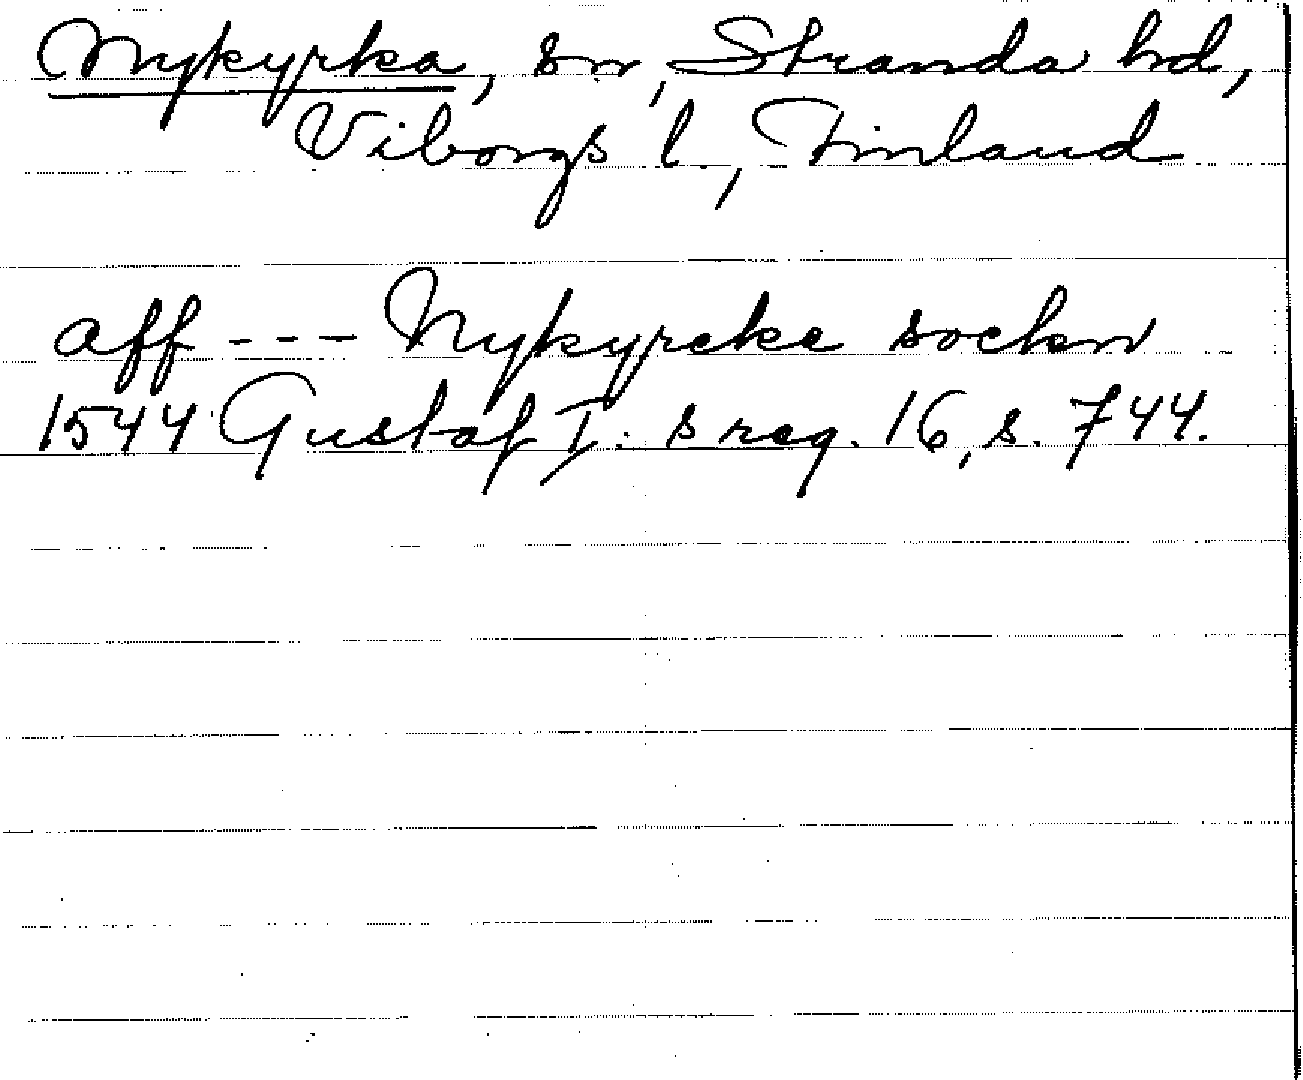 Nykyrka, sn, Stranda hd,
Viborgs l., Finland
aff --- Nykyrcke sockn
1544 Gustaf I:s reg. 16, s. 744.